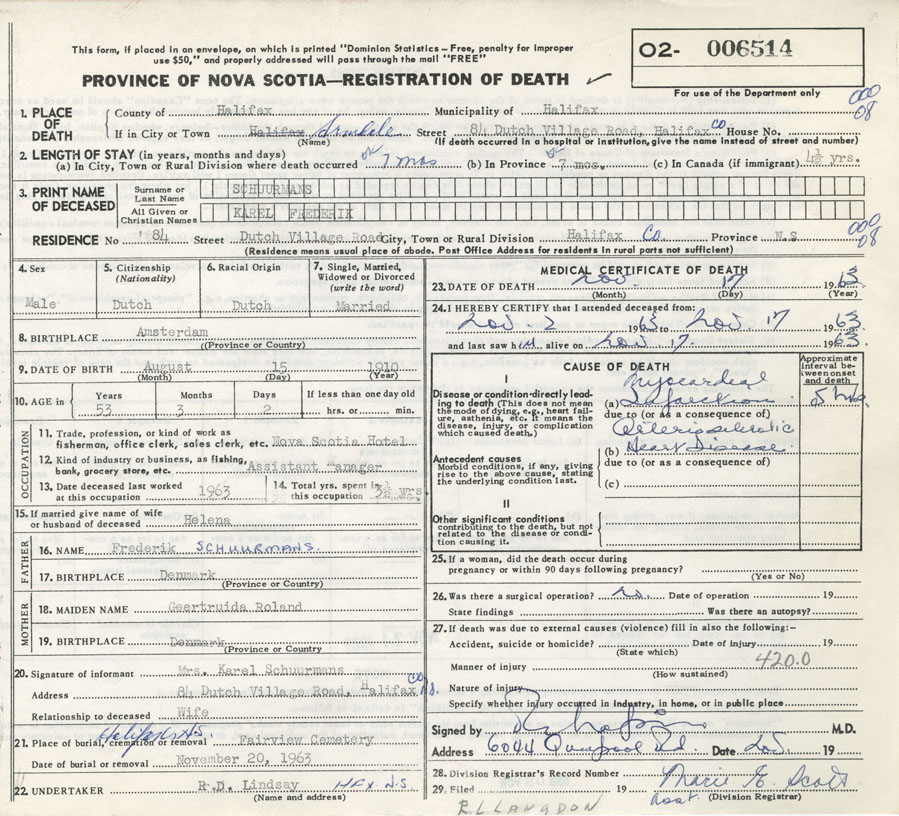 This form, if placed in an envelope, on which is printed "Dominion Statistics – Free, penalty for improper
use $50," and properly addressed will pass through the mail "FREE"
O2- 006514
For use of the Department only
PROVINCE OF NOVA SCOTIA—REGISTRATION OF DEATH ✓
000
08
1. PLACE OF DEATH
County of Halifax Municipality of Halifax
If in City or Town Halifax Armdale Street 84 Dutch Village Road, Halifax Co House No.
(Name) (If death occurred in a hospital or institution, give the name instead of street and number)
2. LENGTH OF STAY (in years, months and days)
(a) In City, Town or Rural Division where death occurred 7 mos (b) In Province 7 mos. (c) In Canada (if immigrant) 4½ yrs.
3. PRINT NAME OF DECEASED
Surname or Last Name SCHUURMANS
All Given or Christian Names KAREL FREDERIK
RESIDENCE No 84 Street Dutch Village Road City, Town or Rural Division Halifax Co. Province N.S
000
08
(Residence means usual place of abode. Post Office Address for residents in rural parts not sufficient)
4. Sex
Male
5. Citizenship
(Nationality)
Dutch
6. Racial Origin
Dutch
7. Single, Married, Widowed or Divorced
(write the word)
Married
8. BIRTHPLACE Amsterdam
((Province or Country)
9. DATE OF BIRTH August 15 1910
(Month) (Day) (Year)
10. AGE in
Years Months Days If less than one day old
53 3 2 hrs. or min.
OCCUPATION
11. Trade, profession, or kind of work as
fisherman, office clerk, sales clerk, etc. Nova Scotia Hotel
12. Kind of industry or business, as fishing,
bank, grocery store, etc. Assistant anager
13. Date deceased last worked
at this occupation 1963
14. Total yrs. spent in
this occupation 3½ yrs.
15. If married give name of wife
or husband of deceased Helena
FATHER
16. NAME Frederik SCHUURMANS.
17. BIRTHPLACE Denmark
(Province or Country)
MOTHER
18. MAIDEN NAME Geertruida Roland
19. BIRTHPLACE Denmark
(Province or Country)
20. Signature of informant Mrs. Karel Schuurmans
Address 84 Dutch Village Road, Halifax Co N.S.
Relationship to deceased Wife
21. Place of burial, cremation or removal Halifax N.S. Fairview Cemetery
Date of burial or removal November 20, 1963
22. UNDERTAKER R.D. Lindsay HFX N.S.
(Name and address)
MEDICAL CERTIFICATE OF DEATH
23. DATE OF DEATH Nov. 17 1963
(Month) (Day) (Year)
24. I HEREBY CERTIFY that I attended deceased from:
Nov. 2 1963 to Nov. 17 1963
and last saw him alive on Nov 17. 1963.
CAUSE OF DEATH
Approximate interval between onset and death
I
Disease or condition directly leading to death (This does not mean the mode of dying, e.g., heart failure, asthenia, etc. It means the disease, injury, or complication which caused death.)
(a) Myocardial Infarction 5 hrs
due to (or as a consequence of)
Arteriosclerotic
(b) Heart Disease
due to (or as a consequence of)
(c)
Antecedent causes
Morbid conditions, if any, giving rise to the above cause, stating the underlying condition last.
II
Other significant conditions
contributing to the death, but not related to the disease or condition causing it.
25. If a woman, did the death occur during
pregnancy or within 90 days following pregnancy?
(Yes or No)
26. Was there a surgical operation? no. Date of operation 19
State findings Was there an autopsy?
27. If death was due to external causes (violence) fill in also the following:–
Accident, suicide or homicide? Date of injury 19
(State which)
Manner of injury 420.0
(How sustained)
Nature of injury
Specify whether injury occurred in industry, in home, or in public place
Signed by M.D.
Address 6044 Quinpool Rd. Date Nov. 19
28. Division Registrar's Record Number
29. Filed 19 Marie E. Scott
Asst. (Division Registrar)
R.L. LANGDON